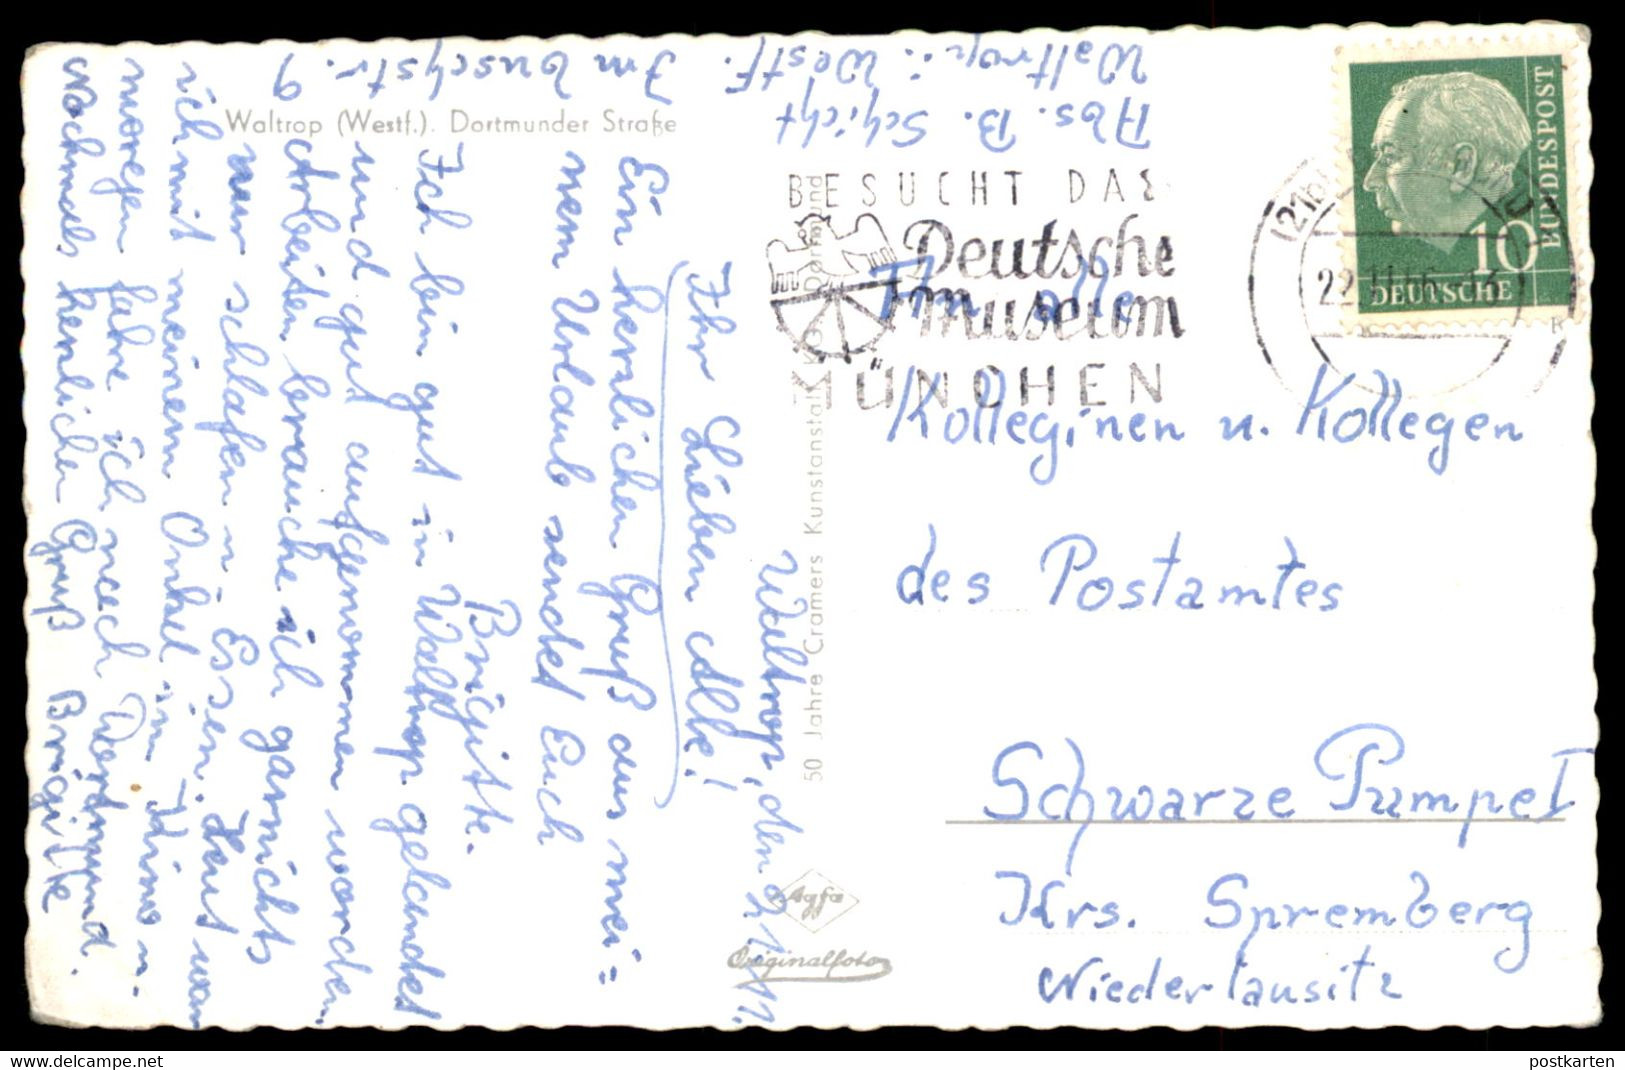 Waltrop (Westf.). Dortmunder Straße
Abs. B. Schicht
Waltrop i. Westf.
Im Buschstr. 9
Waltrop, den
Ihr Lieben Alle!
Ein herzlichen Gruß aus mei=
nem Urlaub sendet Euch
Brigitte.
Ich bin gut in Waltrop gelandet
und gut aufgenommen worden.
Arbeiten brauche ich garnichts
nur schlafen u Essen. Heut war
ich mit meinem Onkel im Kino u.
morgen fahre ich nach Dortmund.
Nochmals herzlichen Gruß Brigitte
50 Jahre Cramers Kunstanstalt KG., Dortmund
Agfa
Originalfoto
BESUCHT DAS
Deutsche
Museum
MÜNCHEN
(21b)
22.11.
DEUTSCHE
BUNDESPOST
10
An alle
Kolleginen u. Kollegen
des Postamtes
Schwarze Pumpe I
Krs. Spremberg
Niederlausitz
postkarten
www.delcampe.net